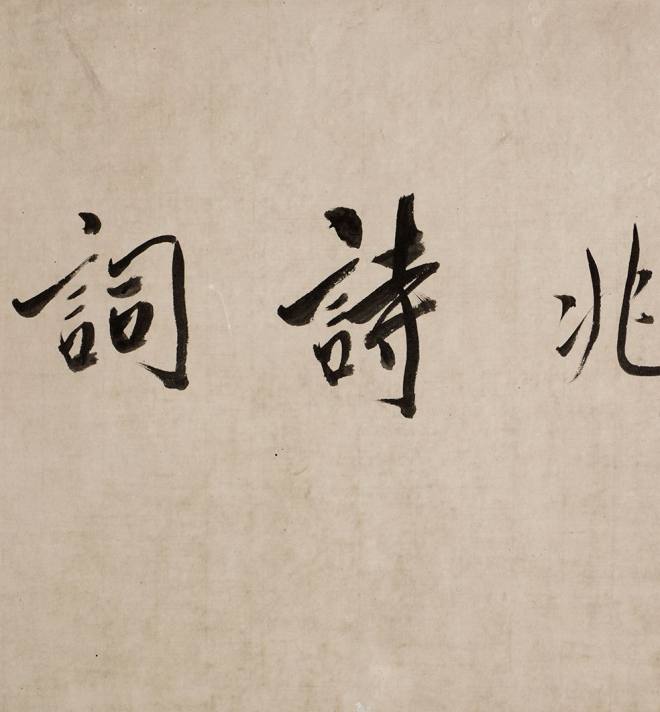 兆詩詞